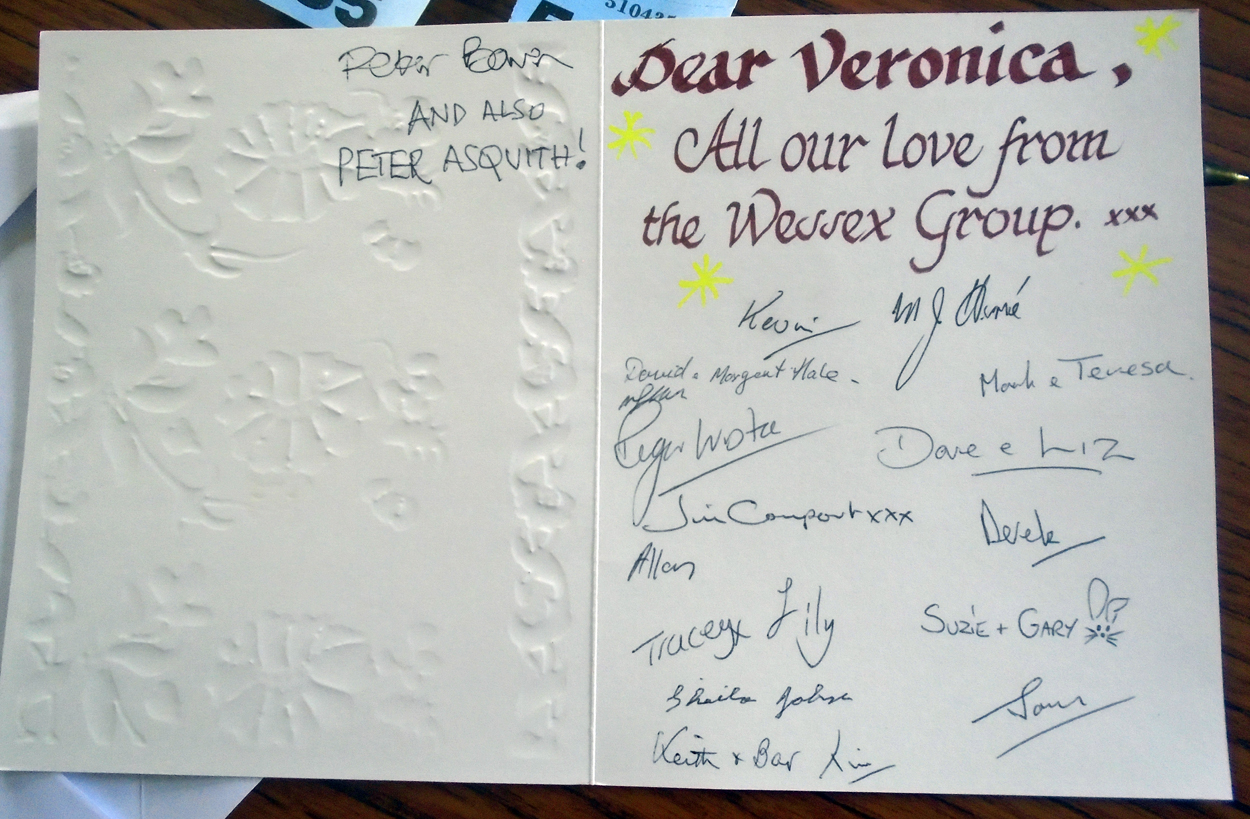 Peter Bown
AND ALSO
PETER ASQUITH!
Dear Veronica,
All our love from
the Wessex Group. xxx
Kevin
M J
David & Margaret Hale.
Mark & Teresa.
Roger
Dave & LIZ
Jim Comport xxx
Derek
Allan
Tracey x Lily
SUZIE + GARY
Sheila John
Keith + Bar Kim